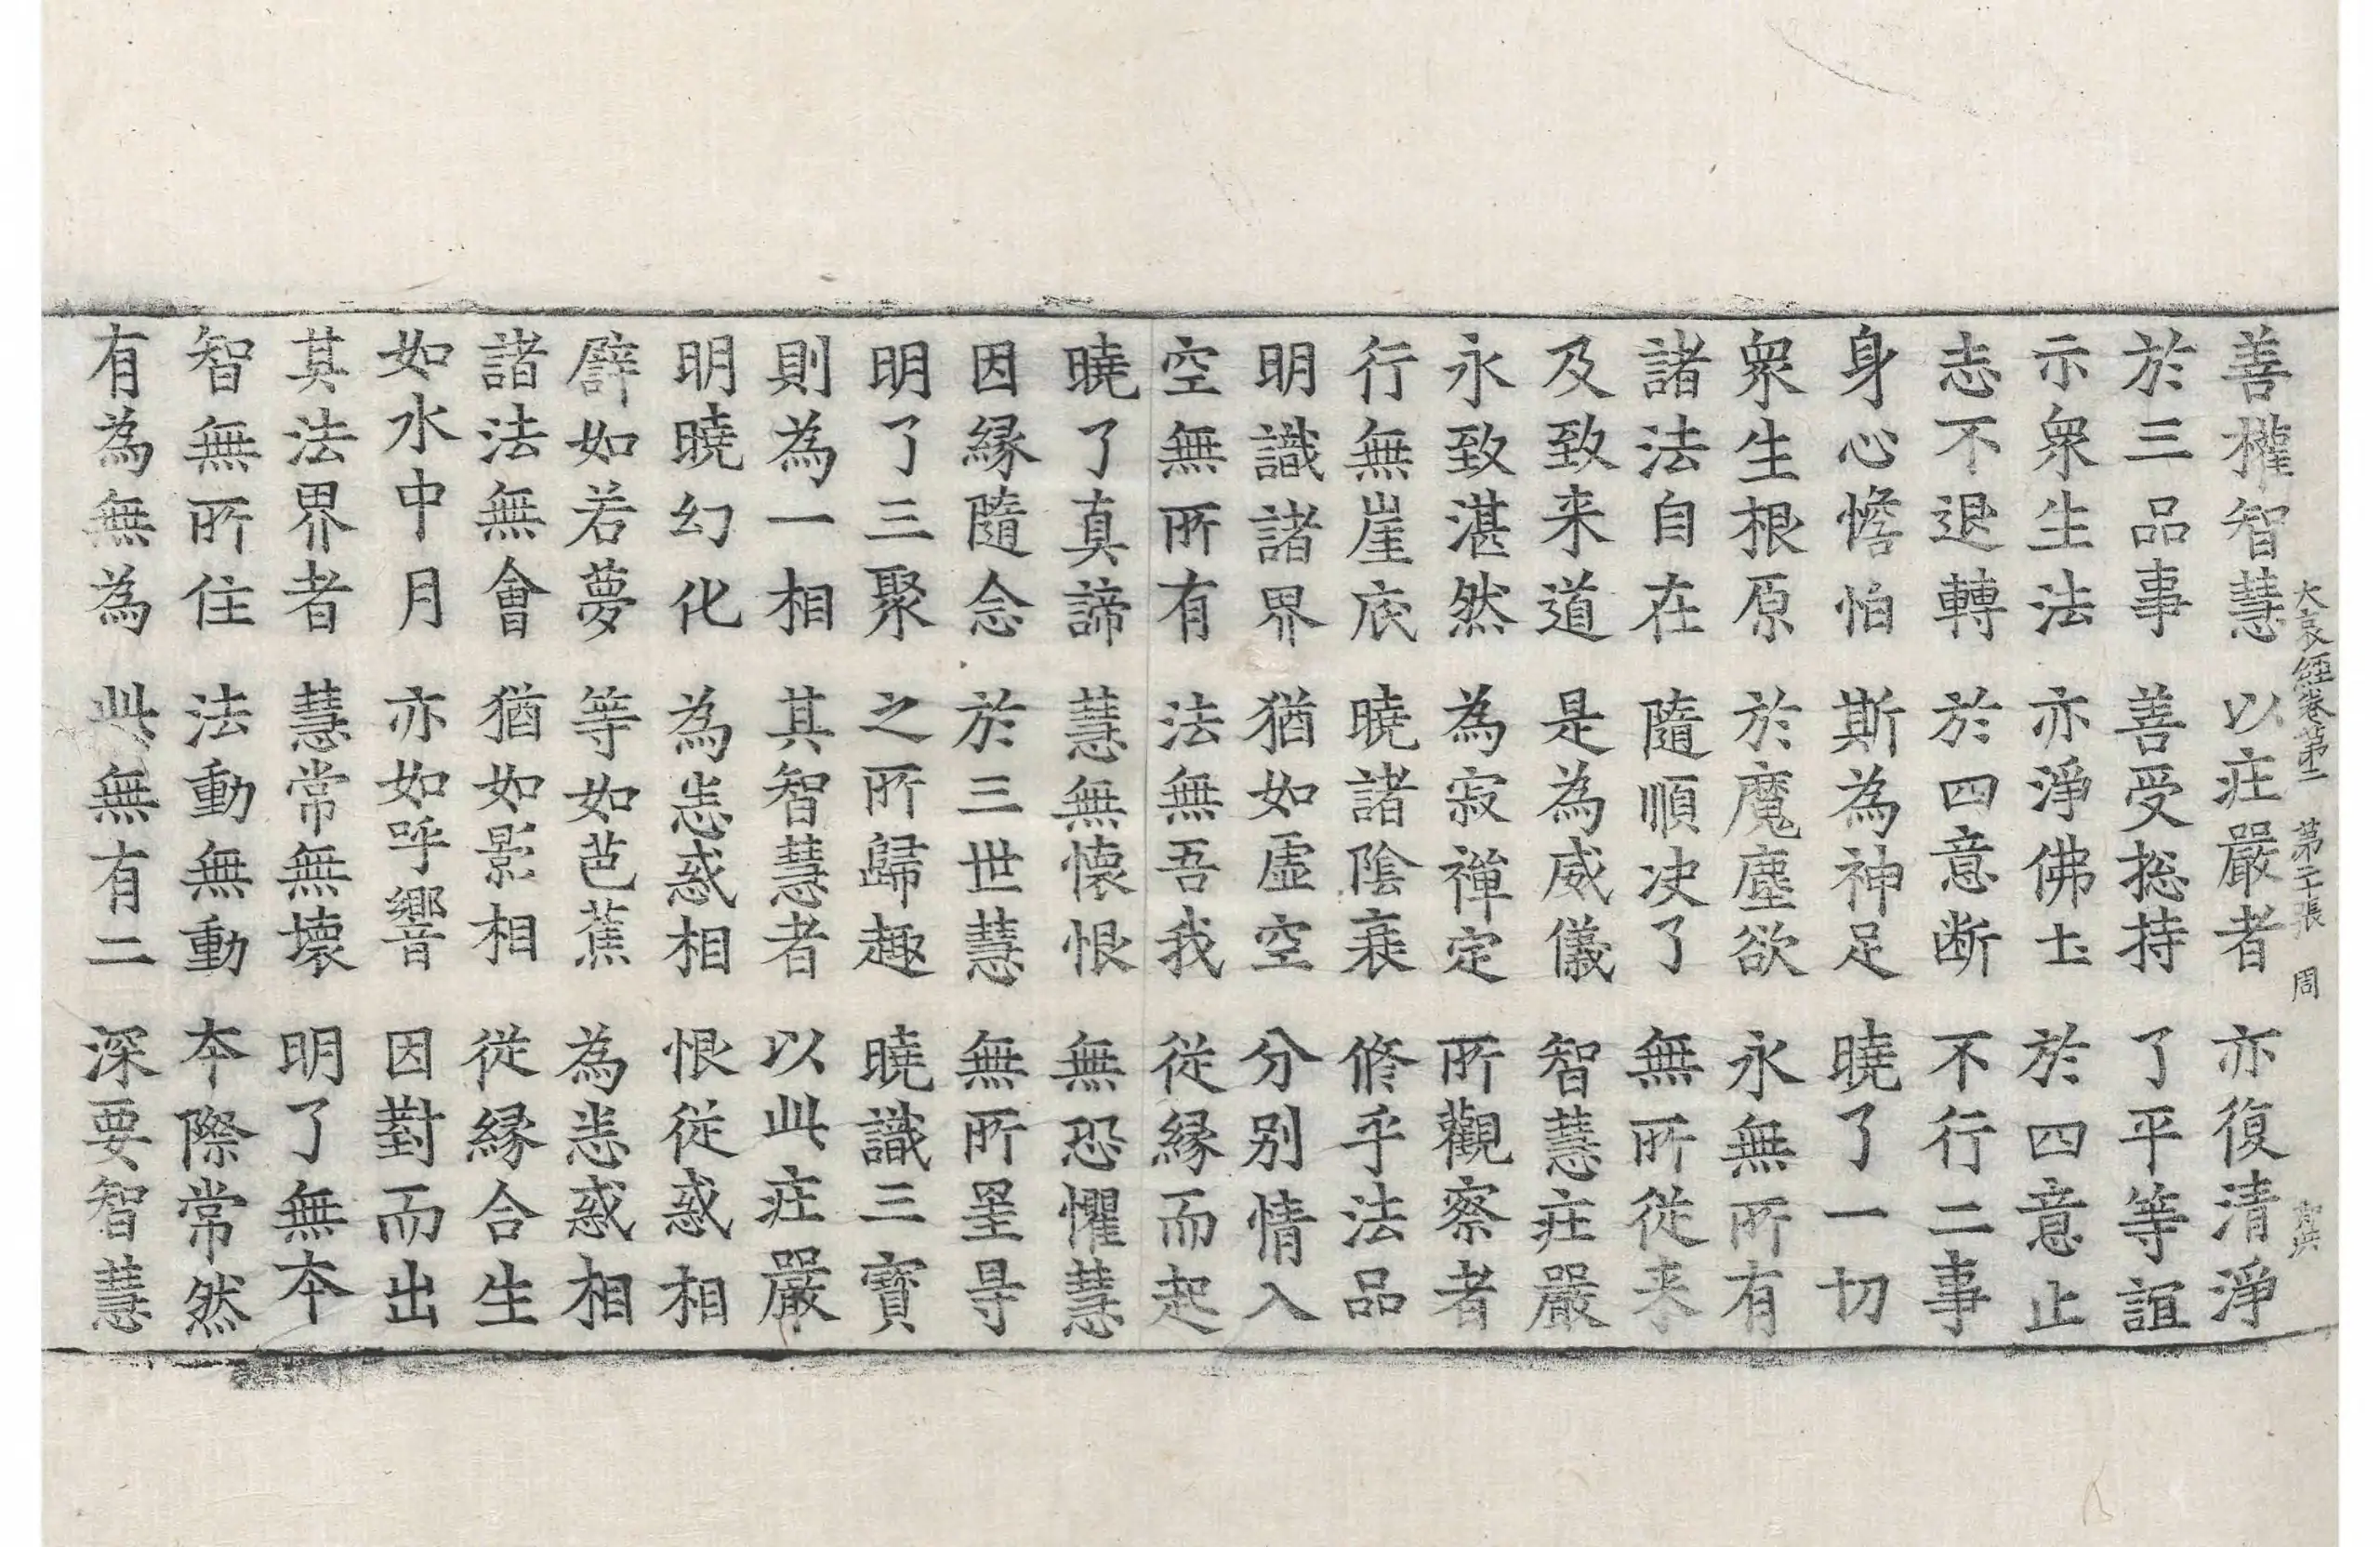 大哀經卷第二 第二十張 周
善權智慧 以庄嚴者 亦復清淨
於三品事 善受捴持 了平等誼
示衆生法 亦淨佛土 於四意止
志不退轉 於四意断 不行二事
身心憺怕 斯為神足 曉了一切
衆生根原 於魔塵欲 永無所有
諸法自在 隨順决了 無所從来
及致来道 是為威儀 智慧庄嚴
永致湛然 為寂禪定 所觀察者
行無崖底 曉諸陰衰 修乎法品
明識諸界 猶如虛空 分别情入
空無所有 法無吾我 從緣而起
曉了真諦 慧無懷恨 無恐懼慧
因緣隨念 於三世慧 無所罣㝵
明了三聚 之所歸趣 曉識三寶
則為一相 其智慧者 以此庄嚴
明曉幻化 為恙惑相 恨從惑相
譬如若夢 等如芭蕉 為恙惑相
諸法無會 猶如影相 從緣合生
如水中月 亦如呼響 因對而出
其法界者 慧常無壞 明了無本
智無所住 法動無動 本際常然
有為無為 此無有二 深要智慧